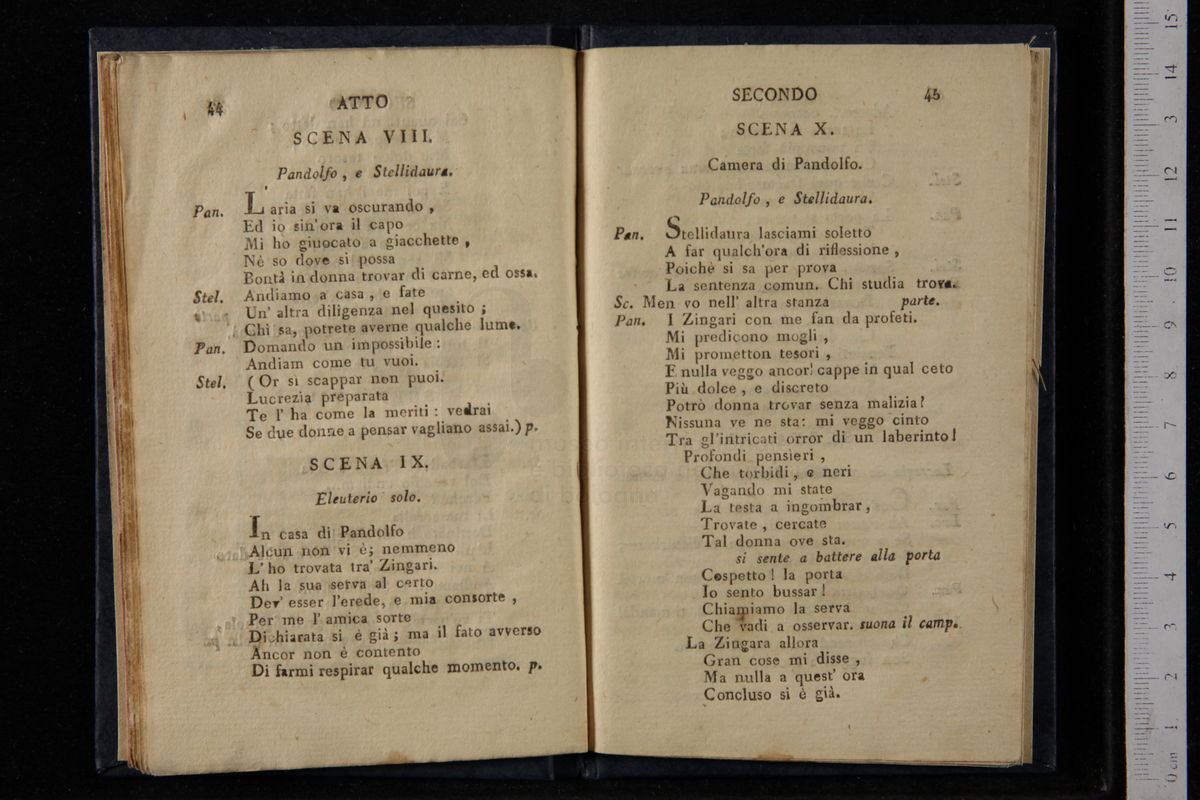 44
ATTO
SCENA VIII.
Pandolfo, e Stellidaura.
Pan. L'aria si va oscurando,
Ed io sin'ora il capo
Mi ho giuocato a giacchette,
Nè so dove si possa
Bontà in donna trovar di carne, ed ossa.
Stel. Andiamo a casa, e fate
Un' altra diligenza nel quesito;
Chi sa, potrete averne qualche lume.
Pan. Domando un impossibile:
Andiam come tu vuoi.
Stel. (Or si scappar non puoi.
Lucrezia preparata
Te l' ha come la meriti: vedrai
Se due donne a pensar vagliano assai.) p.
SCENA IX.
Eleuterio solo.
In casa di Pandolfo
Alcun non vi è; nemmeno
L' ho trovata tra' Zingari.
Ah la sua serva al certo
Dev' esser l'erede, e mia consorte,
Per me l' amica sorte
Dichiarata si è già; ma il fato avverso
Ancor non è contento
Di farmi respirar qualche momento. p.
SECONDO
45
SCENA X.
Camera di Pandolfo.
Pandolfo, e Stellidaura.
Pan. Stellidaura lasciami soletto
A far qualch'ora di riflessione,
Poichè si sa per prova
La sentenza comun. Chi studia trova.
Sc. Men vo nell' altra stanza parte.
Pan. I Zingari con me fan da profeti.
Mi predicono mogli,
Mi prometton tesori,
E nulla veggo ancor! cappe in qual ceto
Più dolce, e discreto
Potrò donna trovar senza malizia?
Nissuna ve ne sta: mi veggo cinto
Tra gl'intricati orror di un laberinto!
Profondi pensieri,
Che torbidi, e neri
Vagando mi state
La testa a ingombrar,
Trovate, cercate
Tal donna ove sta.
si sente a battere alla porta
Cospetto! la porta
Io sento bussar!
Chiamiamo la serva
Che vadi a osservar. suona il camp.
La Zingara allora
Gran cose mi disse,
Ma nulla a quest' ora
Concluso si è già.
0 cm 1 2 3 4 5 6 7 8 9 10 11 12 13 14 15